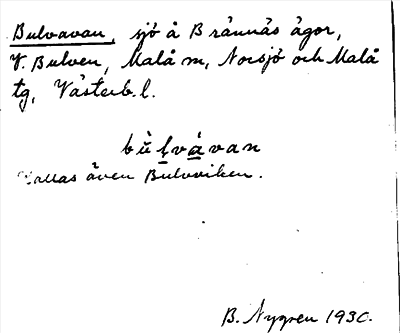 Bulvavan, sjö å Brännäs ägor,
V. Bulven, Malå m, Norsjö och Malå
tg, Västerb. l.
bu̇lvávan
Kallas även Bulvviken.
B. Nygren 1930.